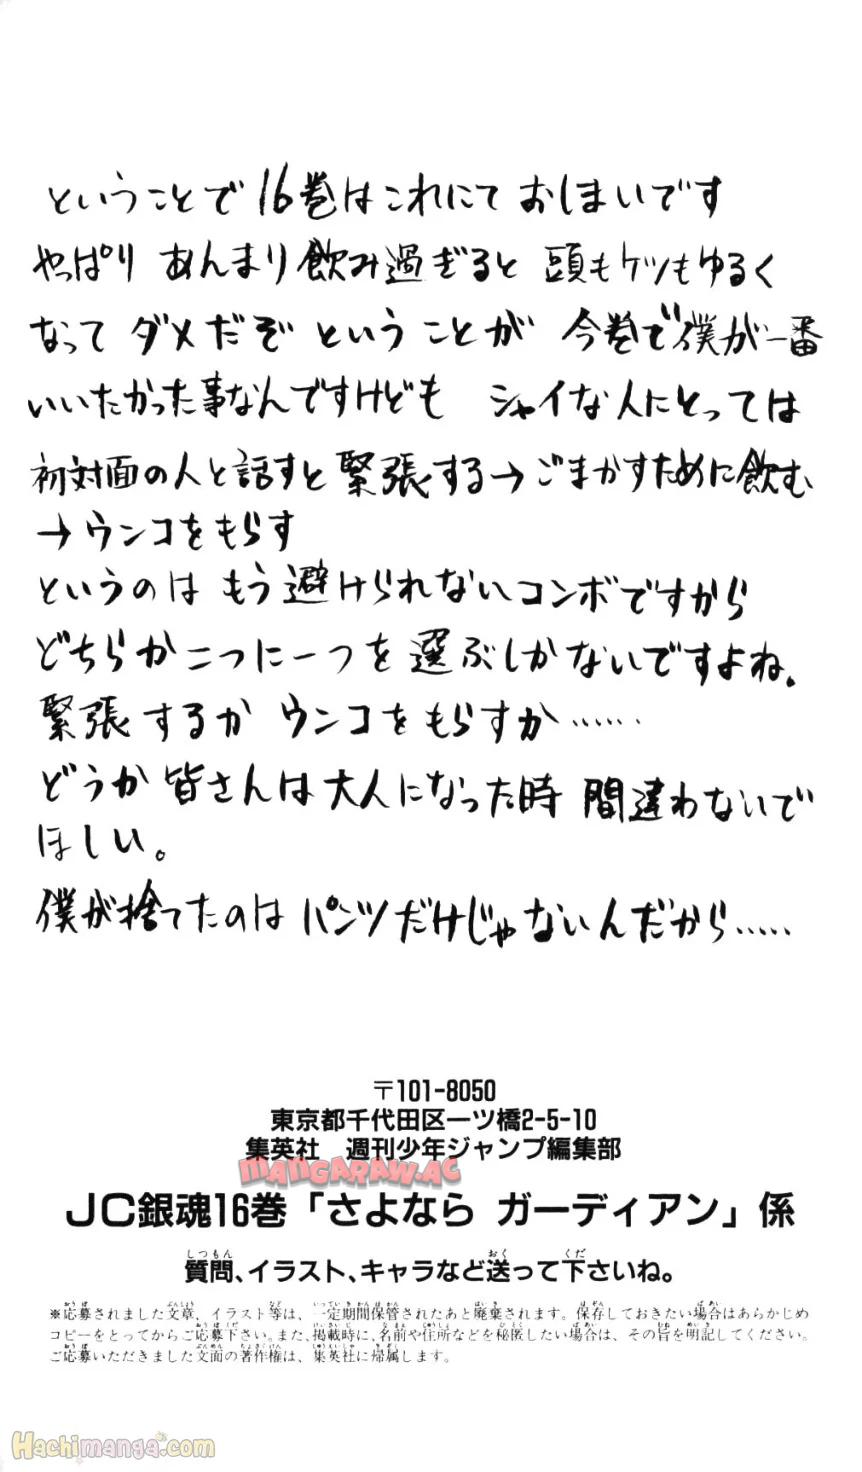 ということで 16巻はこれにて おしまいです
やっぱり あんまり飲み過ぎると 頭もケツもゆるく
なって ダメだぞ ということが 今巻で僕が一番
いいたかった事なんですけども シャイな人にとっては
初対面の人と話すと緊張する→ごまかすために飲む
→ウンコをもらす
というのは もう避けられないコンボですから
どちらか二つに一つを選ぶしかないですよね。
緊張するか ウンコをもらすか……
どうか皆さんは大人になった時 間違わないで
ほしい。
僕が捨てたのは パンツだけじゃないんだから……
〒101-8050
東京都千代田区一ツ橋2-5-10
集英社 週刊少年ジャンプ編集部
MANGARAW.AC
JC銀魂16巻「さよなら ガーディアン」係
質問、イラスト、キャラなど送って下さいね。
※応募されました文章、イラスト等は、一定期間保管されたあと廃棄されます。保存しておきたい場合はあらかじめ
コピーをとってからご応募下さい。また、掲載時に、名前や住所などを秘匿したい場合は、その旨を明記してください。
ご応募いただきました文面の著作権は、集英社に帰属します。
Hachimanga.com